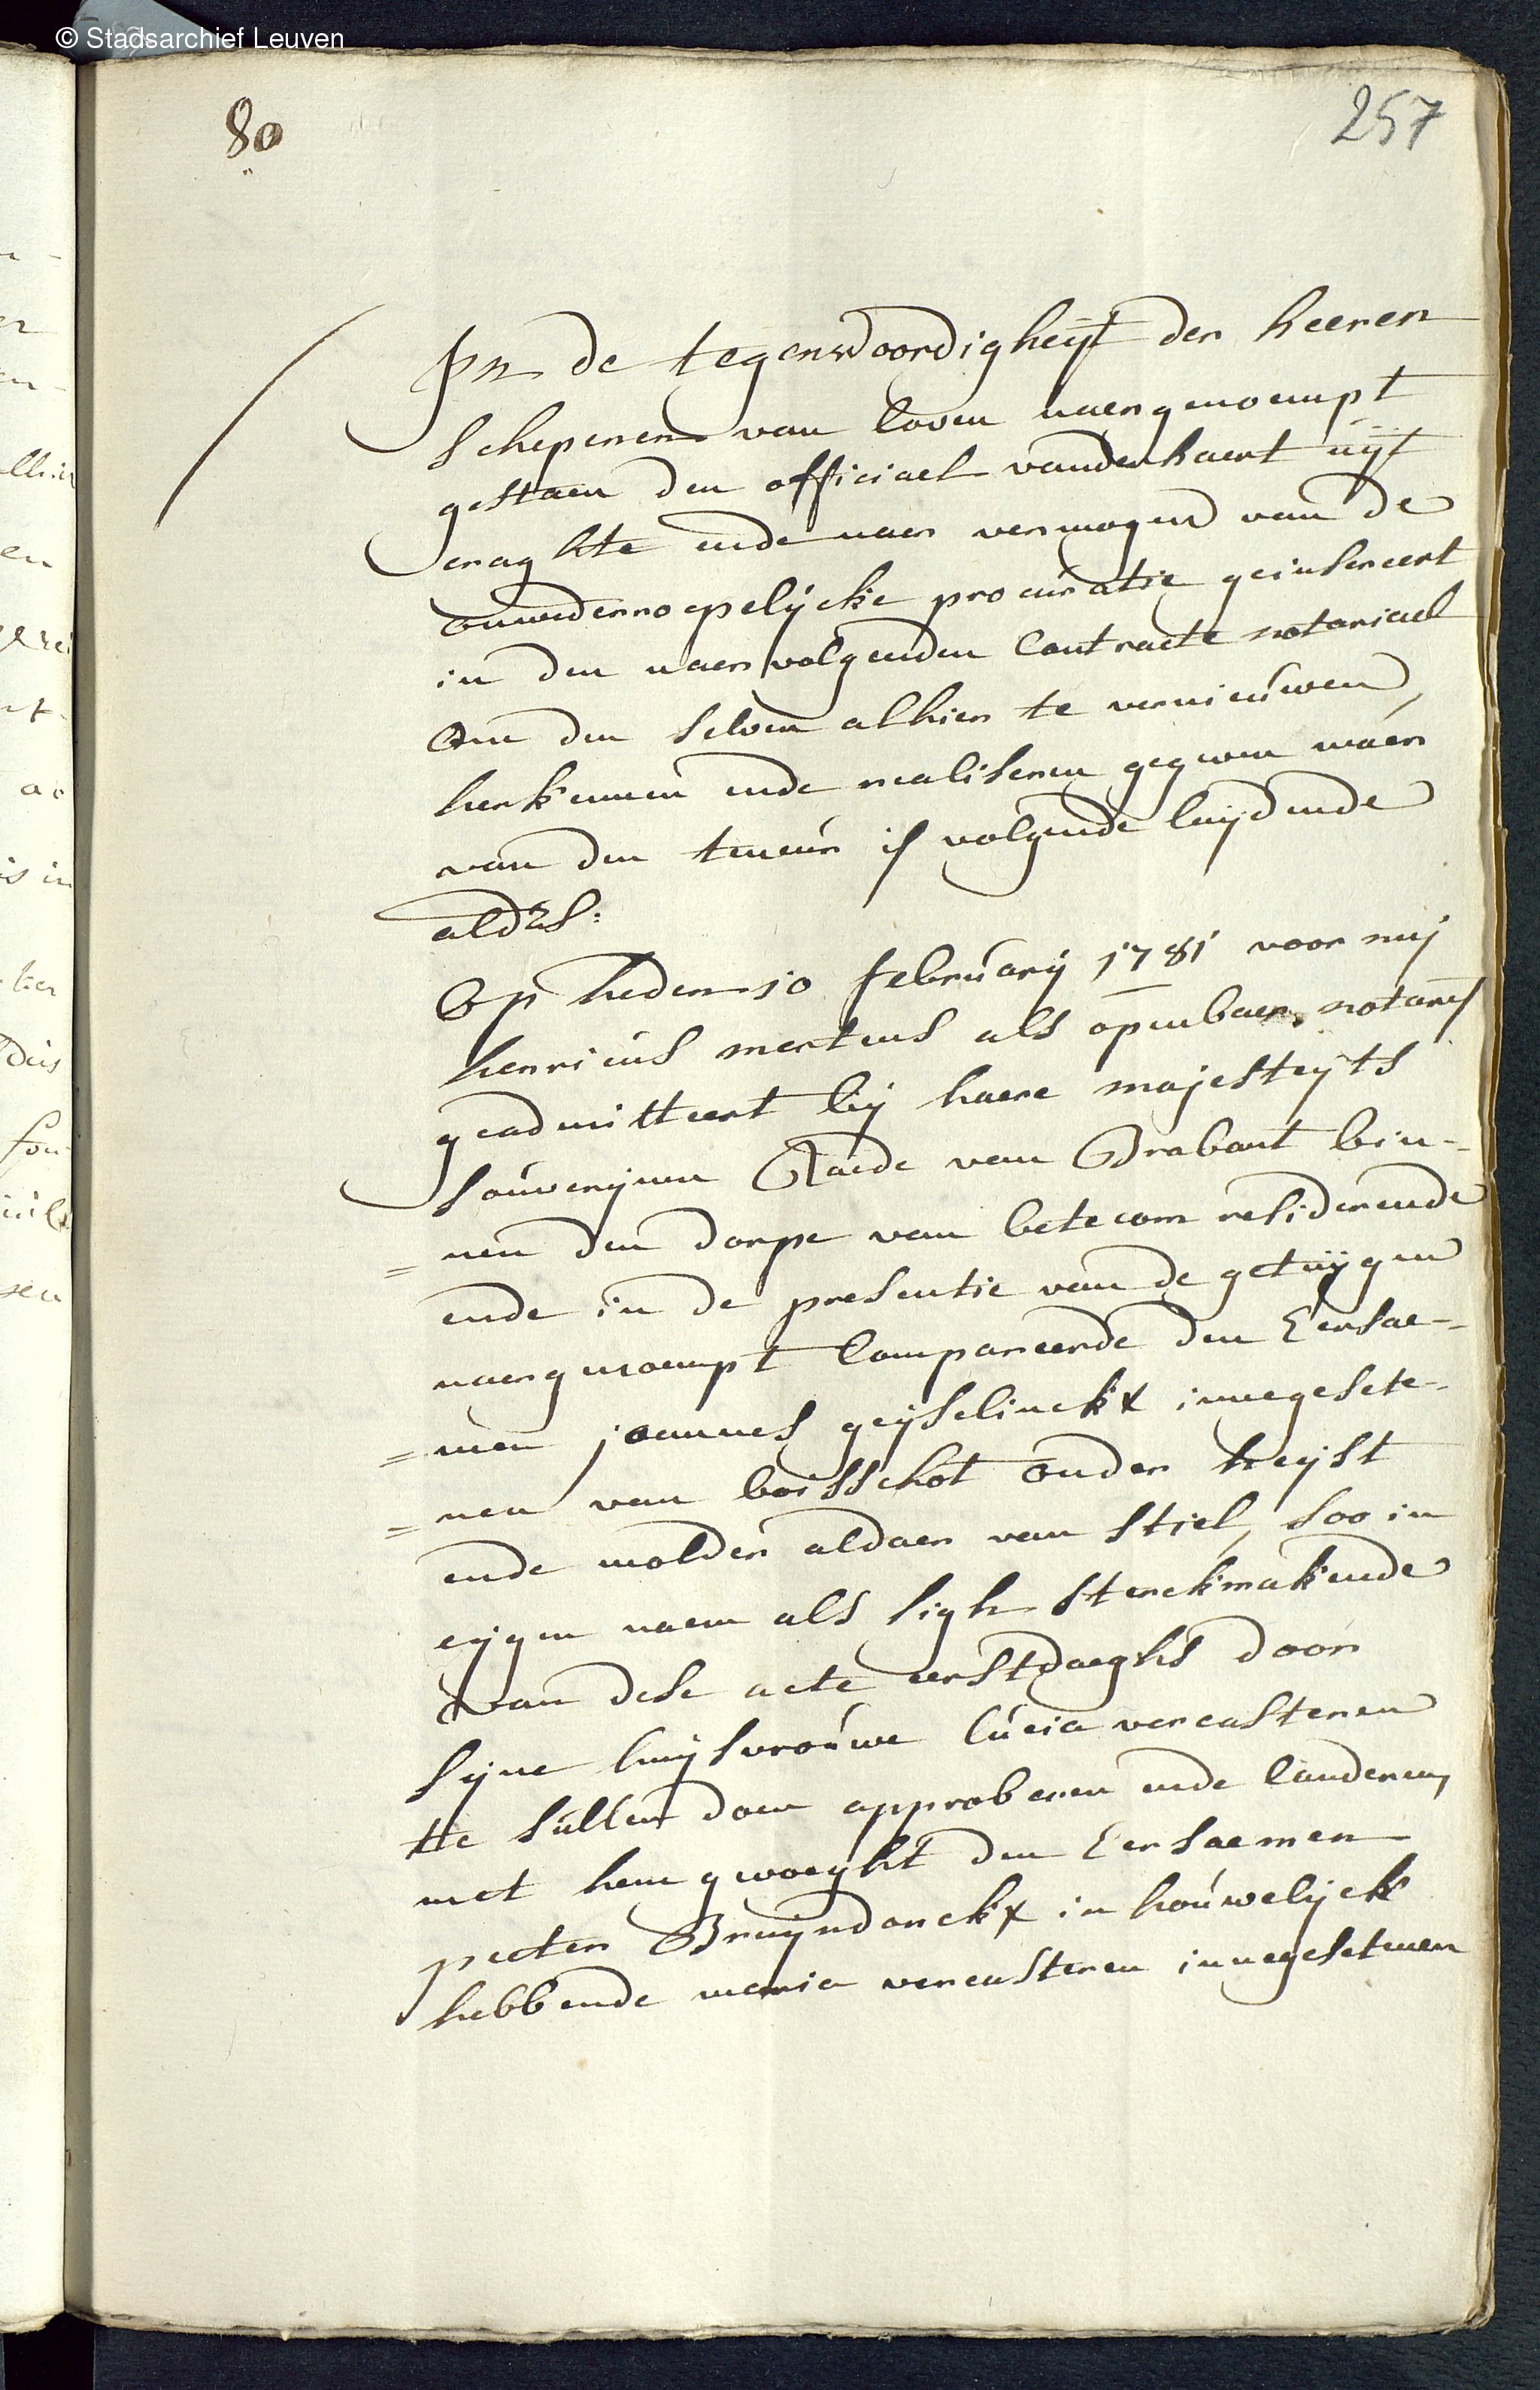 © Stadsarchief Leuven
80
257
In de tegenwoordigheijt der heeren
schepenen van loven naergenoempt
gestaen den officiael vanden haert uijt
craghte ende naer vermogen van de
onwederroepelijcke procuratie geinsereert
in den naervolgenden Contracte notariael
om den selven alhier te vernieuwen,
herkennen ende realiseren gegeven waer
van den teneur is volgende luijdende
aldus:
Op heden 10 februarij 1781 voor mij
henricus mertens als openbaer notaris
geadmitteert bij haere majesteijts
souvereijnen Raede van Brabant bin-
= nen den dorpe van betecom residerende
ende in de presentie van de getuijgen
naergenoempt Compareerde den Eersae-
= men joannes geijselinckx innegesete-
= nen van boisschot onder heijst
ende molder aldaer van stiel, soo in
eijgen naem als sigh sterckmakende
van dese acte eerstdaeghs door
sijne huijsvrouwe lucia vercasteren
te sullen doen approberen ende lauderen,
met hem gevoeght den Eersaemen
peeter Bruijndonckx in houwelijck
hebbende maria vercasteren innegesetenen